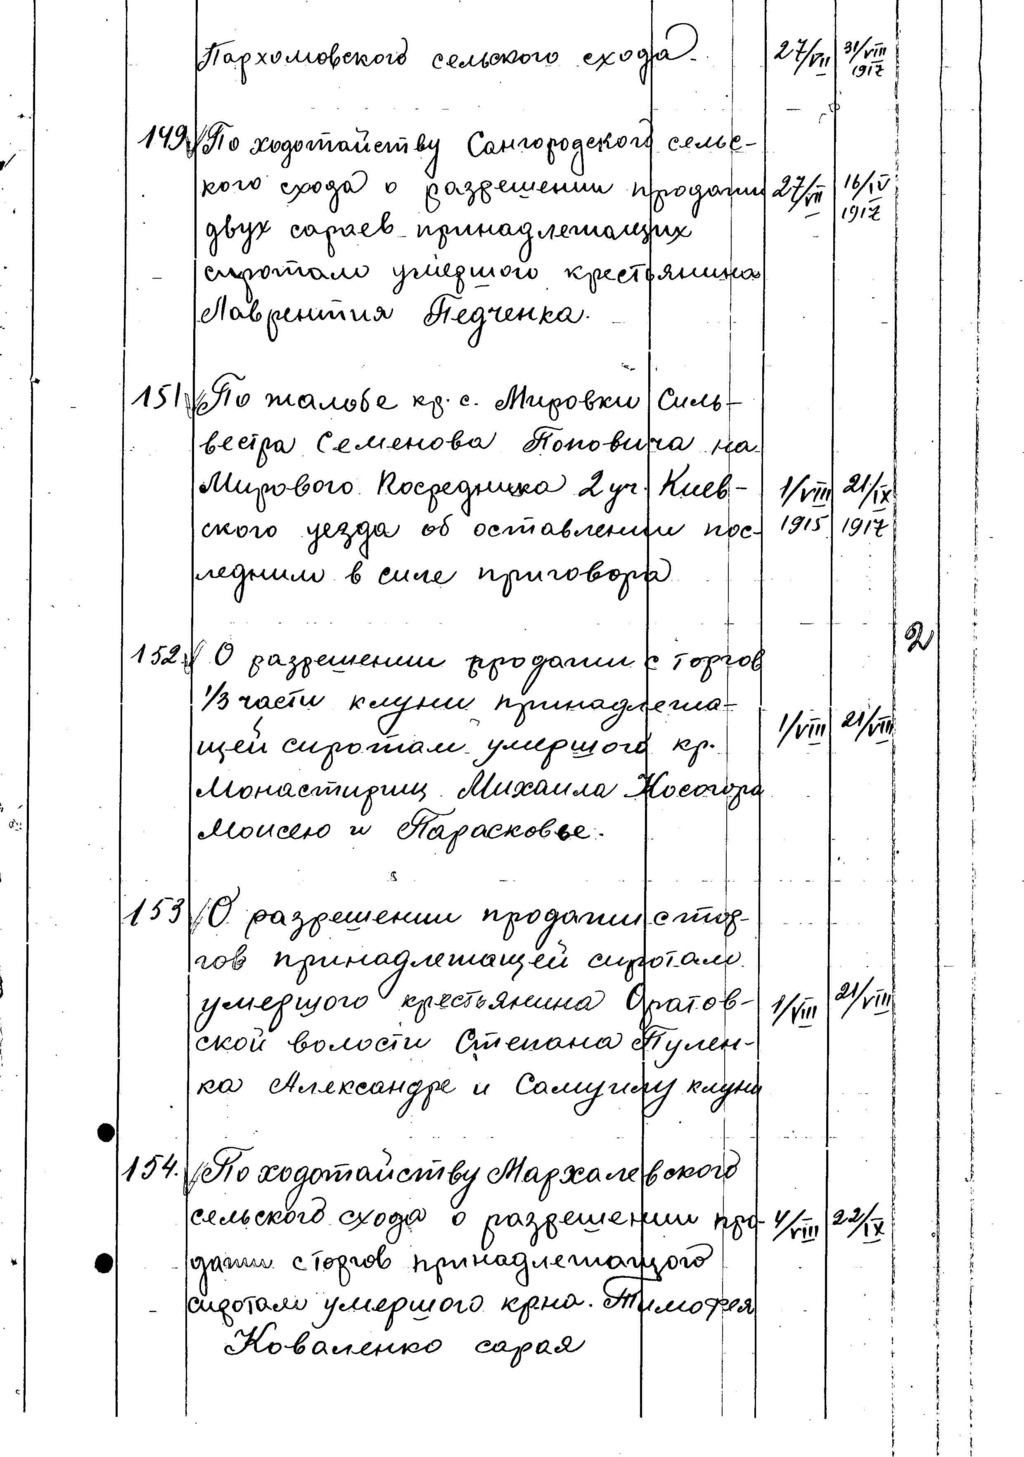 Пархомовского сельского схода. 27/VII 31/VIII 1917
149. По ходотайству Сангородского сельс-
кого схода о разрешении продажи 27/VII 16/IV 1917
двух сараев принадлежащих
сиротам умершого крестьянина
Лаврентия Педченка.
151 По жалобе кр. с. Мировки Силь-
вестра Семенова Поповича на
Мирового Посредника 2 уч. Киев- 1/VIII 21/IX
ского уезда об оставлении пос- 1915 1917
ледним в силе приговора
152. О разрешении продажи с торгов
2
1/3 части клуни принадлежа-
щей сиротам умершого кр. 1/VIII 21/VIII
Монастирищ Михаила Косогора
Моисею и Парасковье.
153 О разрешении продажи с тор-
гов принадлежащей сиротам
умершого крестьянина Оратов- 1/VIII 21/VIII
ской волости Степана Пулен-
ка Александре и Самуилу клуни
154. По ходотайству Мархалевского
сельского схода о разрешении про- 4/VIII 22/IX
дажи с торгов принадлежащого
сиротам умершого крна. Тимофея
Коваленко сарая